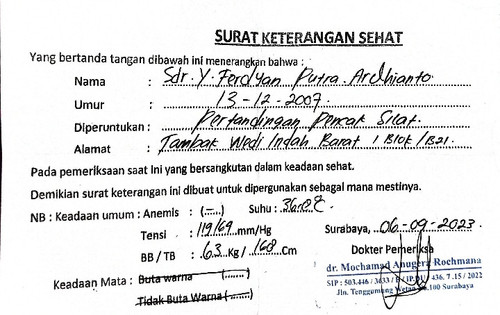 SURAT KETERANGAN SEHAT
Yang bertanda tangan dibawah ini menerangkan bahwa :
Nama : Sdr. Y. Ferdyan Putra Ardhianto
Umur : 13-12-2007.
Diperuntukan : Pertandingan Pencak Silat.
Alamat : Tambak Wedi Indah Barat 1 Blok / B21.
Pada pemeriksaan saat Ini yang bersangkutan dalam keadaan sehat.
Demikian surat keterangan ini dibuat untuk dipergunakan sebagai mana mestinya.
NB : Keadaan umum : Anemis : (-) Suhu : 36.0°C
Tensi : 119/69 mm/Hg Surabaya, 06-09-2023
BB / TB : 63 Kg / 168 Cm Dokter Pemeriksa
dr. Mochamad Anugera Rochmana
Keadaan Mata : Buta warna (.......) SIP : 503.446 / 436.7.15 / 2022
Tidak Buta Warna (.......) Jln. Tenggumung Wetan 100 Surabaya